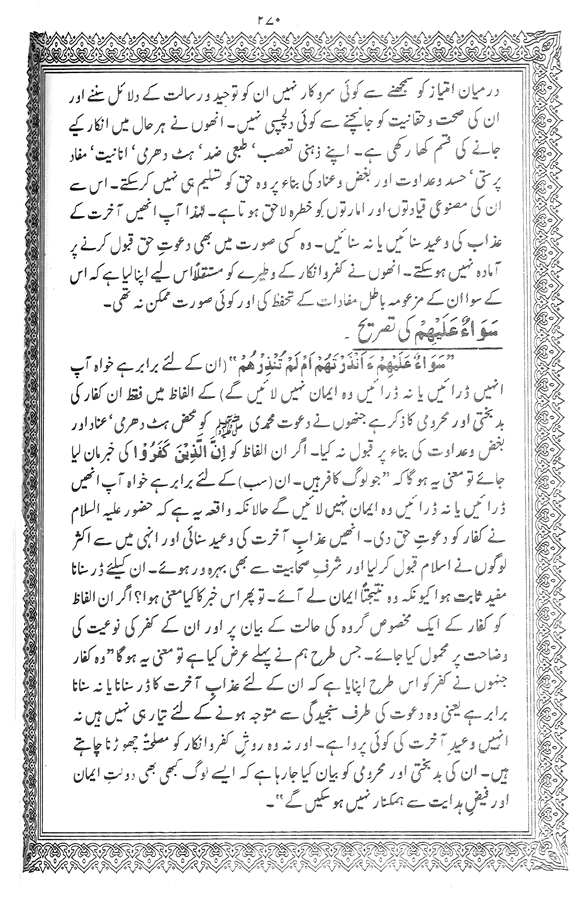 ۲۷۰
درمیان امتیاز کو سمجھنے سے کوئی سروکار نہیں ان کو توحید و رسالت کے دلائل سننے اور
ان کی صحت و حقانیت کو جانچنے سے کوئی دلچسپی نہیں۔ انھوں نے ہر حال میں انکار کیے
جانے کی قسم کھا رکھی ہے۔ اپنے ذہنی تعصب‘ طبعی ضد‘ ہٹ دھرمی‘ انانیت‘ مفاد
پرستی‘ حسد و عداوت اور بغض و عناد کی بناء پر وہ حق کو تسلیم ہی نہیں کرسکتے۔ اس سے
ان کی مصنوعی قیادتوں اور امارتوں کو خطرہ لاحق ہوتا ہے۔ لہٰذا آپ انھیں آخرت کے
عذاب کی وعید سنائیں یا نہ سنائیں۔ وہ کسی صورت میں بھی دعوتِ حق قبول کرنے پر
آمادہ نہیں ہوسکتے۔ انھوں نے کفر و انکار کے وطیرے کو مستقلاً اس لیے اپنا لیا ہے کہ اس
کے سوا ان کے مزعومہ باطل مفادات کے تحفظ کی اور کوئی صورت ممکن نہ تھی۔
سَوَاءٌ عَلَيْهِمْ کی تصریح ۔
”سَوَاءٌ عَلَيْهِمْ ءَ اَنْذَرْتَهُمْ اَمْ لَمْ تُنْذِرْهُمْ“ (ان کے لئے برابر ہے خواہ آپ
انہیں ڈرائیں یا نہ ڈرائیں وہ ایمان نہیں لائیں گے) کے الفاظ میں فقط ان کفار کی
بدبختی اور محرومی کا ذکر ہے جنھوں نے دعوت محمدی ﷺ کو محض ہٹ دھرمی‘ عناد اور
بغض و عداوت کی بناء پر قبول نہ کیا۔ اگر ان الفاظ کو اِنَّ الَّذِيْنَ كَفَرُوْا کی خبر مان لیا
جائے تو معنی یہ ہو گا کہ ”جو لوگ کافر ہیں۔ ان (سب) کے لئے برابر ہے خواہ آپ انھیں
ڈرائیں یا نہ ڈرائیں وہ ایمان نہیں لائیں گے حالانکہ واقعہ یہ ہے کہ حضور علیہ السلام
نے کفار کو دعوتِ حق دی۔ انھیں عذابِ آخرت کی وعید سنائی اور انہی میں سے اکثر
لوگوں نے اسلام قبول کر لیا اور شرفِ صحابیت سے بھی بہرہ ور ہوئے۔ ان کیلئے ڈر سنانا
مفید ثابت ہوا کیونکہ وہ نتیجتاً ایمان لے آئے۔ تو پھر اس خبر کا کیا معنی ہوا؟ اگر ان الفاظ
کو کفار کے ایک مخصوص گروہ کی حالت کے بیان پر اور ان کے کفر کی نوعیت کی
وضاحت پر محمول کیا جائے۔ جس طرح ہم نے پہلے عرض کیا ہے تو معنی یہ ہو گا ”وہ کفار
جنہوں نے کفر کو اس طرح اپنایا ہے کہ ان کے لئے عذابِ آخرت کا ڈر سنانا یا نہ سنانا
برابر ہے یعنی وہ دعوت کی طرف سنجیدگی سے متوجہ ہونے کے لئے تیار ہی نہیں ہیں نہ
انہیں وعیدِ آخرت کی کوئی پروا ہے۔ اور نہ وہ روشِ کفر و انکار کو مصلحتہً چھوڑنا چاہتے
ہیں۔ ان کی بدبختی اور محرومی کو بیان کیا جا رہا ہے کہ ایسے لوگ کبھی بھی دولتِ ایمان
اور فیضِ ہدایت سے ہمکنار نہیں ہو سکیں گے“۔